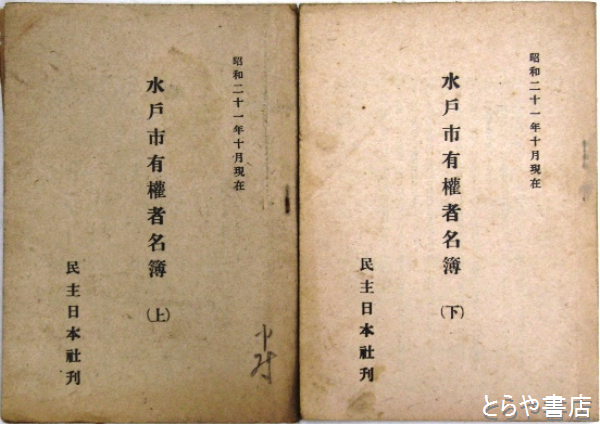 昭和二十一年十月現在
水戸市有權者名簿（上）
民主日本社刊
昭和二十一年十月現在
水戸市有權者名簿（下）
民主日本社刊
とらや書店